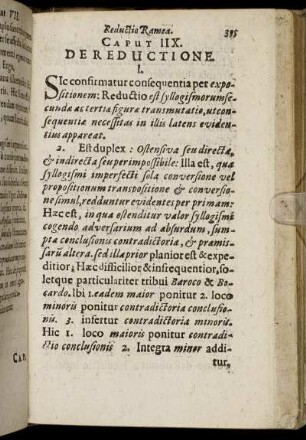 Reductio Ramea. 395
CAPUT IIX.
DE REDUCTIONE.
I.
SIc confirmatur consequentia per expo-
sitionem: Reductio est syllogismorum se-
cundæ ac tertiæ figuræ transmutatio, ut con-
sequentiæ necessitas in illis latens eviden-
tius appareat.
2. Est duplex: Ostensiva seu directa,
& indirecta seu per impossibile: Illa est, qua
syllogismi imperfecti sola conversione vel
propositionum transpositione & conversio-
ne simul, redduntur evidentes per primam:
Hæc est, in qua ostenditur valor syllogismi
cogendo adversarium ad absurdum, sum-
pta conclusionis contradictoria, & præmis-
sarū altera. sed illa prior planior est & expe-
ditior; Hæc difficilior & infrequentior, so-
letque particulariter tribui Baroco & Bo-
cardo. Ibi 1. eadem maior ponitur 2. loco
minoris ponitur contradictoria conclusio-
nis 3. infertur contradictoria minoris.
Hic 1. loco maioris ponitur contradi-
ctio conclusionis 2. Integra minor addi-
tur,
CAP.